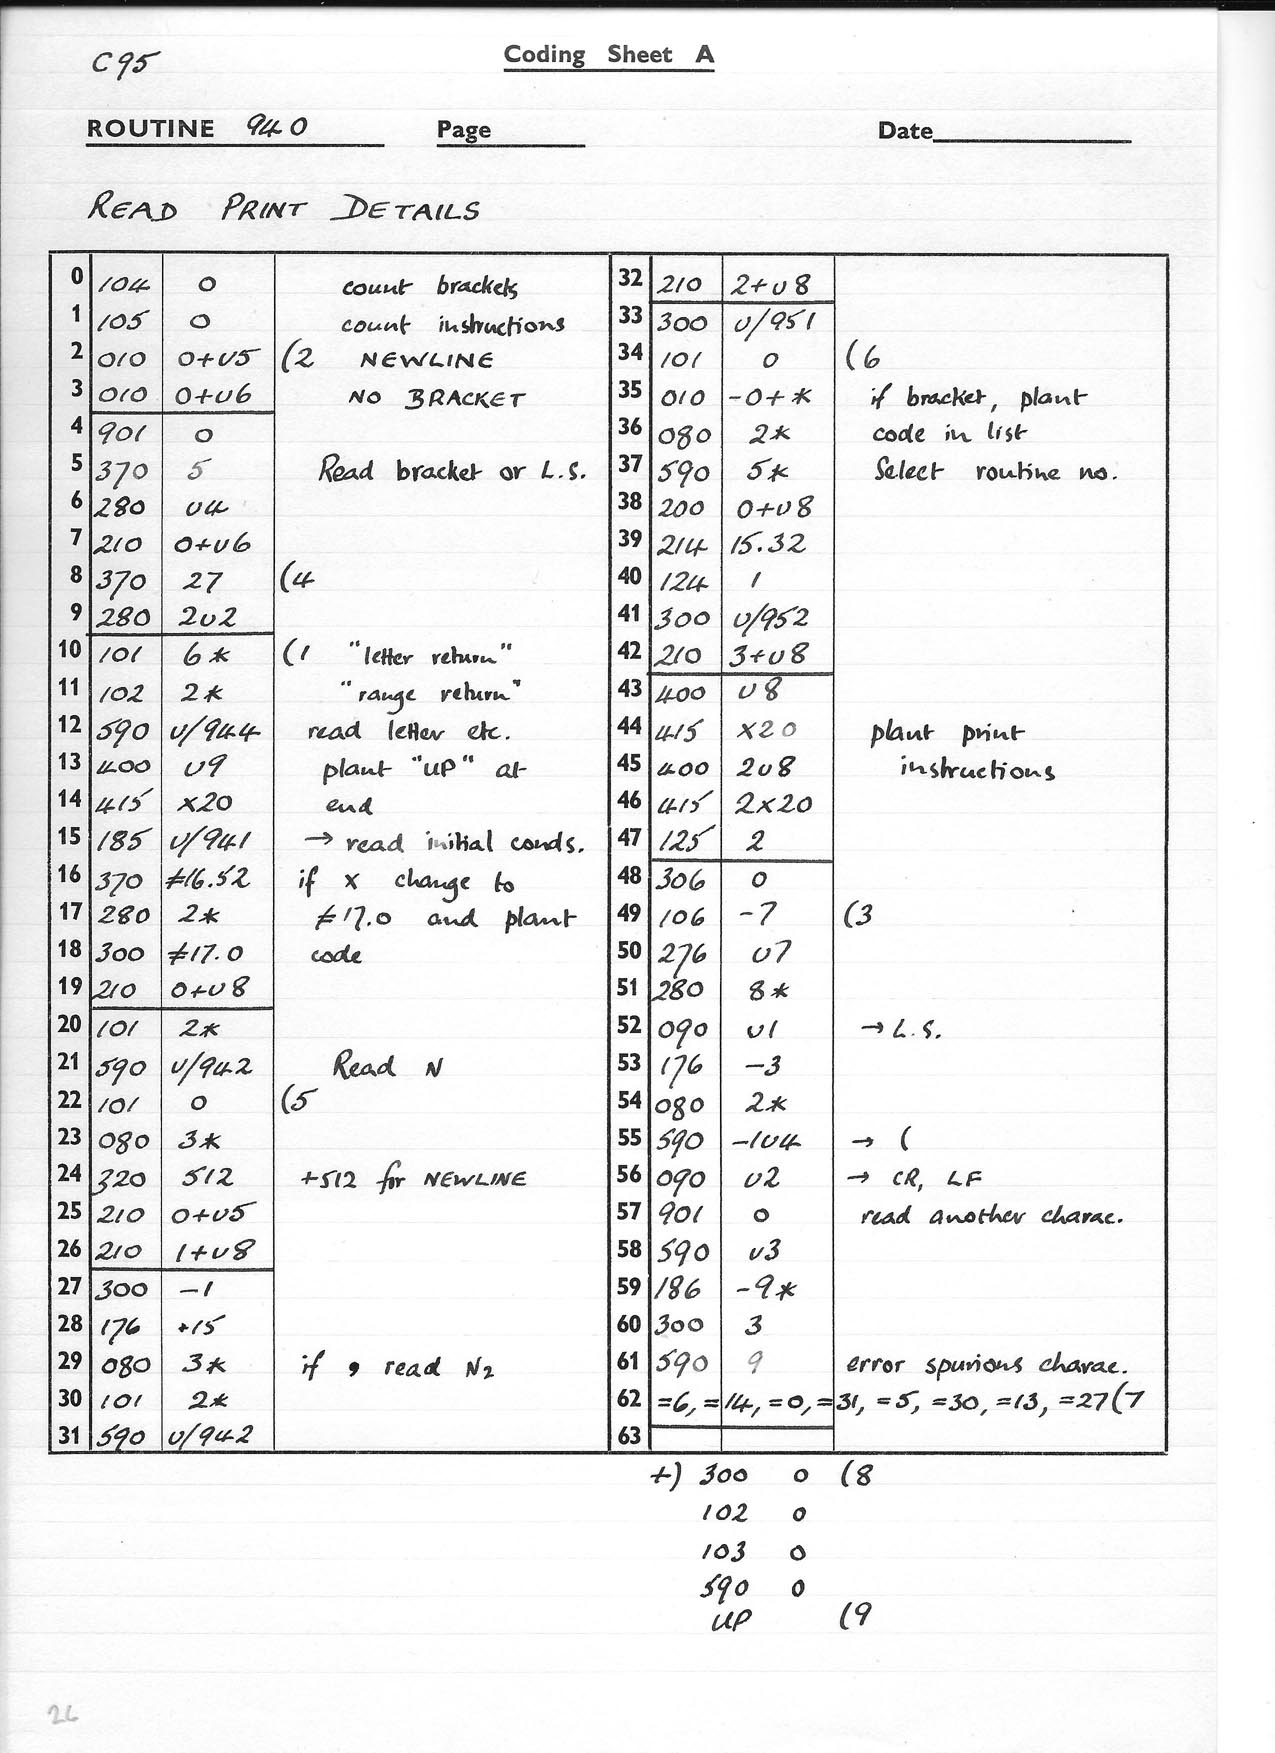 C95
Coding Sheet A
ROUTINE 940 Page Date
READ PRINT DETAILS
0 104 0 count brackets
1 105 0 count instructions
2 010 0+υ5 (2 NEWLINE
3 010 0+υ6 NO BRACKET
4 901 0
5 370 5 Read bracket or L.S.
6 280 υ4
7 210 0+υ6
8 370 27 (4
9 280 2υ2
10 101 6* (1 "letter return"
11 102 2* "range return"
12 590 υ/944 read letter etc.
13 400 υ9 plant "UP" at
14 415 x20 end
15 185 υ/941 → read initial conds.
16 370 ≠16.52 if x change to
17 280 2* ≠17.0 and plant
18 300 ≠17.0 code
19 210 0+υ8
20 101 2*
21 590 υ/942 Read N
22 101 0 (5
23 080 3*
24 320 512 +512 for NEWLINE
25 210 0+υ5
26 210 1+υ8
27 300 -1
28 176 +15
29 080 3* if , read N2
30 101 2*
31 590 υ/942
32 210 2+υ8
33 300 υ/951
34 101 0 (6
35 010 -0+* if bracket, plant
36 080 2* code in list
37 590 5* Select routine no.
38 200 0+υ8
39 214 15.32
40 124 1
41 300 υ/952
42 210 3+υ8
43 400 υ8
44 415 x20 plant print
45 400 2υ8 instructions
46 415 2x20
47 125 2
48 306 0
49 106 -7 (3
50 276 υ7
51 280 8*
52 090 υ1 → L.S.
53 176 -3
54 080 2*
55 590 -1υ4 → (
56 090 υ2 → CR, LF
57 901 0 read another charac.
58 590 υ3
59 186 -9*
60 300 3
61 590 9 error spurious charac.
62 =6, =14, =0, =31, =5, =30, =13, =27(7
63
+) 300 0 (8
102 0
103 0
590 0
UP (9
26